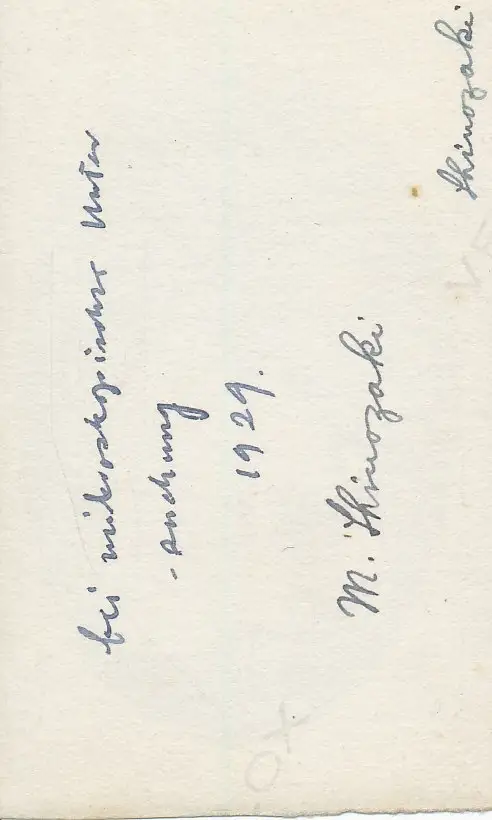 bei mikroskopischer Unter
-suchung
1929.
M. Shinozaki
Shinozaki